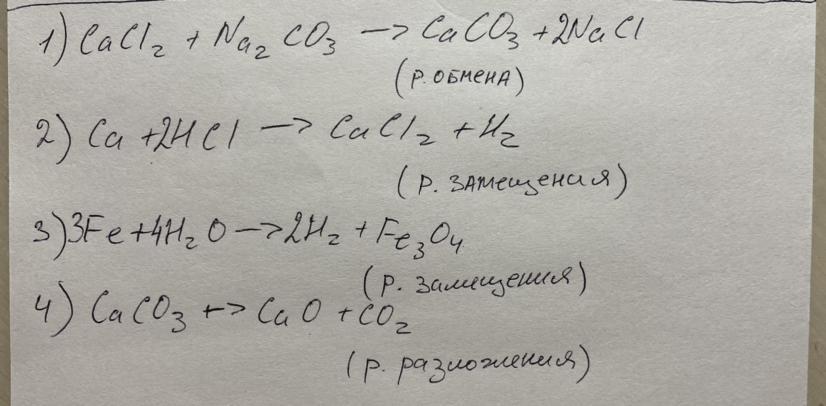 1) CaCl₂ + Na₂CO₃ → CaCO₃ + 2NaCl
(р. обмена)
2) Ca + 2HCl → CaCl₂ + H₂
(р. замещения)
3) 3Fe + 4H₂O → 2H₂ + Fe₃O₄
(р. замещения)
4) CaCO₃ +→ CaO + CO₂
(р. разложения)